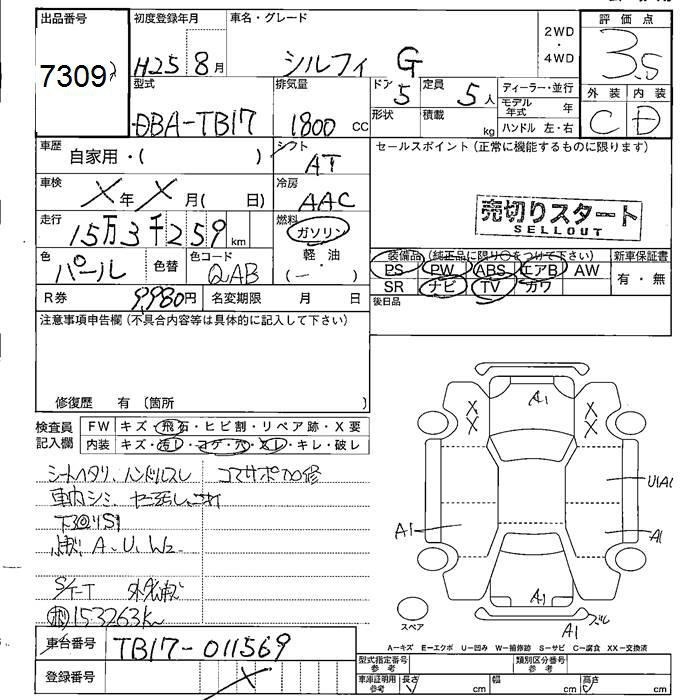 出品番号
7309
初度登録年月
H25 8月
車名・グレード
シルフィ G
2WD
・
4WD
評価点
3.5
外装 内装
C D
型式
DBA-TB17
排気量
1800 CC
ドア
5
定員
5人
形状
積載
kg
ディーラー・並行
モデル年式 年
ハンドル 左・右
車歴
自家用・( )
シフト
AT
セールスポイント (正常に機能するものに限ります)
売切りスタート
SELLOUT
車検
X年 X月( 日)
冷房
AAC
走行
15万3千259km
燃料
ガソリン
軽・油
(ー)
色
パール
色替
色コード
QAB
装備品 (純正品に限り○をつけて下さい)
PS PW ABS エアB AW
SR ナビ TV カワ
新車保証書
有・無
後日品
R券 9,980円
名変期限 月 日
注意事項申告欄 (不具合内容等は具体的に記入して下さい)
修復歴 有 〔箇所 〕
検査員
記入欄
FW キズ・飛石・ヒビ割・リペア跡・X要
内装 キズ・汚レ・コゲ・穴・スレ・キレ・破レ
シートヘタリ、ハンドルスレ
車内シミ、
A、U、W2
S/T-T
153263k
A1
X
X
X
X
U1A1
A1
A1
A1
A1
スペア
A=キズ E=エクボ U=凹み W=補修跡 S=サビ C=腐食 XX=交換済
車台番号 TB17-011569
登録番号 X
型式指定番号
参考
類別区分番号
参考
車庫証明用
参考
長さ
cm
幅
cm
高さ
cm